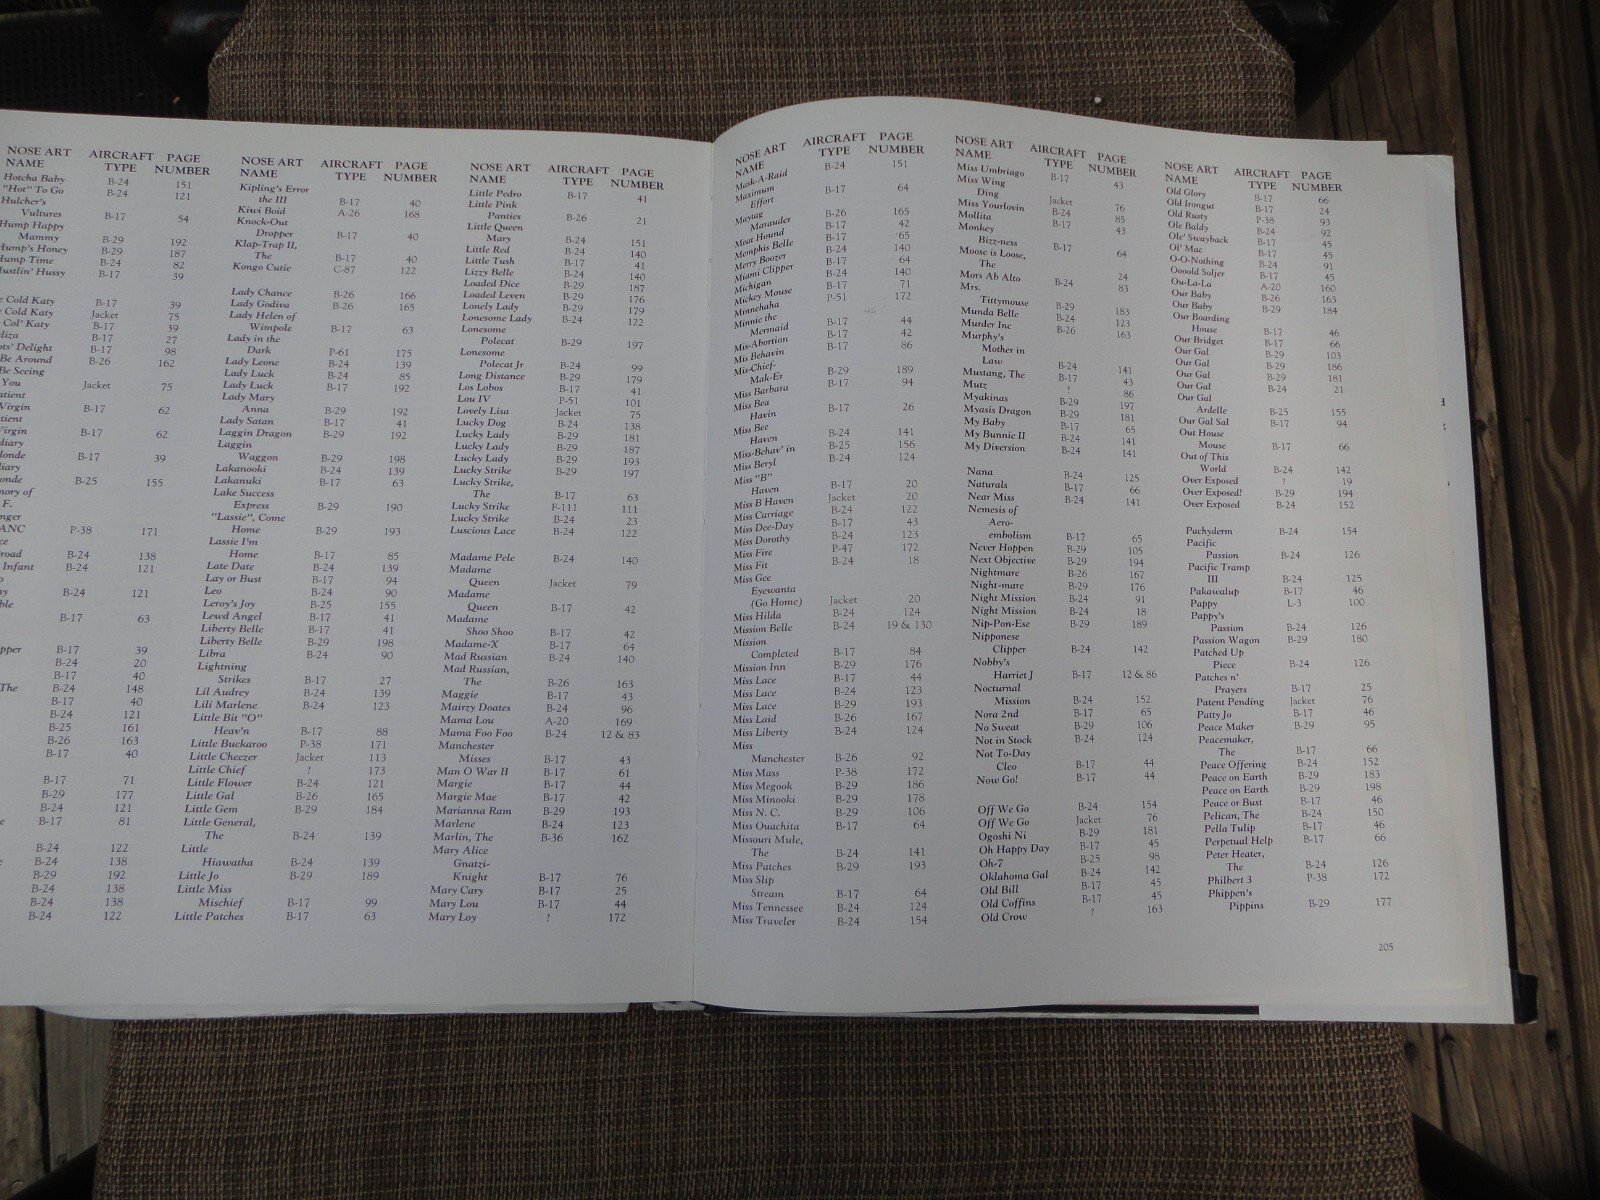 NOSE ART AIRCRAFT PAGE
NAME TYPE NUMBER
Hotcha Baby B-24 151
"Hot" To Go B-24 121
Hulcher's
Vultures B-17 54
Hump Happy
Mammy B-29 192
Hump's Honey B-29 187
Hump Time B-24 82
Hustlin' Hussy B-17 39
Cold Katy B-17 39
Cold Katy Jacket 75
Col' Katy B-17 39
B-17 27
Delight B-17 98
Be Around B-26 162
Be Seeing
You Jacket 75
Virgin B-17 62
B-17 62
B-17 39
B-25 155
P-38 171
B-24 138
Infant B-24 121
B-24 121
B-17 63
B-17 39
B-24 20
B-17 40
The B-24 148
B-17 40
B-24 121
B-25 161
B-26 163
B-17 40
B-17 71
B-29 177
B-24 121
B-17 81
B-24 122
B-24 138
B-29 192
B-24 138
B-24 138
B-24 122
NOSE ART AIRCRAFT PAGE
NAME TYPE NUMBER
Kipling's Error
the III B-17 40
Kiwi Boid A-26 168
Knock-Out
Dropper B-17 40
Klap-Trap II,
The B-17 40
Kongo Cutie C-87 122
Lady Chance B-26 166
Lady Godiva B-26 165
Lady Helen of
Wimpole B-17 63
Lady in the
Dark P-61 175
Lady Leone B-24 139
Lady Luck B-24 85
Lady Luck B-17 192
Lady Mary
Anna B-29 192
Lady Satan B-17 41
Laggin Dragon B-29 192
Laggin
Waggon B-29 198
Lakanooki B-24 139
Lakanuki B-17 63
Lake Success
Express B-29 190
"Lassie", Come
Home B-29 193
Lassie I'm
Home B-17 85
Late Date B-24 139
Lay or Bust B-17 94
Leo B-24 90
Leroy's Joy B-25 155
Lewd Angel B-17 41
Liberty Belle B-17 41
Liberty Belle B-29 198
Libra B-24 90
Lightning
Strikes B-17 27
Lil Audrey B-24 139
Lili Marlene B-24 123
Little Bit "O"
Heav'n B-17 88
Little Buckaroo P-38 171
Little Cheezer Jacket 113
Little Chief ? 173
Little Flower B-24 121
Little Gal B-26 165
Little Gem B-29 184
Little General,
The B-24 139
Little
Hiawatha B-24 139
Little Jo B-29 189
Little Miss
Mischief B-17 99
Little Patches B-17 63
NOSE ART AIRCRAFT PAGE
NAME TYPE NUMBER
Little Pedro B-17 41
Little Pink
Panties B-26 21
Little Queen
Mary B-24 151
Little Red B-24 140
Little Tush B-17 41
Lizzy Belle B-24 140
Loaded Dice B-29 187
Loaded Leven B-29 176
Lonely Lady B-29 179
Lonesome Lady B-24 122
Lonesome
Polecat B-29 197
Lonesome
Polecat Jr B-24 99
Long Distance B-29 179
Los Lobos B-17 41
Lou IV P-51 101
Lovely Lisa Jacket 75
Lucky Dog B-24 138
Lucky Lady B-29 181
Lucky Lady B-29 187
Lucky Lady B-29 193
Lucky Strike B-29 197
Lucky Strike,
The B-17 63
Lucky Strike F-111 111
Lucky Strike B-24 23
Luscious Lace B-24 122
Madame Pele B-24 140
Madame
Queen Jacket 79
Madame
Queen B-17 42
Madame
Shoo Shoo B-17 42
Madame-X B-17 64
Mad Russian B-24 140
Mad Russian,
The B-26 163
Maggie B-17 43
Mairzy Doates B-24 96
Mama Lou A-20 169
Mama Foo Foo B-24 12 & 83
Manchester
Misses B-17 43
Man O War II B-17 61
Margie B-17 44
Margie Mae B-17 42
Marianna Ram B-29 193
Marlene B-24 123
Marlin, The B-36 162
Mary Alice
Gnatzi-
Knight B-17 76
Mary Cary B-17 25
Mary Lou B-17 44
Mary Loy ? 172
NOSE ART AIRCRAFT PAGE
NAME TYPE NUMBER
Mask-A-Raid B-24 151
Maximum
Effort B-17 64
Maytag
Marauder B-26 165
Meat Hound B-17 42
Memphis Belle B-17 65
Merry Boozer B-24 140
Miami Clipper B-17 64
Michigan B-24 140
Mickey Mouse B-17 71
Minnehaha P-51 172
Minnie the
Mermaid B-17 44
Mis-Abortion B-17 42
Mis Behavin B-17 86
Mis-Chief-
Mak-Er B-29 189
Miss Barbara B-17 94
Miss Bea
Havin B-17 26
Miss Bee
Haven B-24 141
Miss-Behav' in B-25 156
Miss Beryl B-24 124
Miss "B"
Haven B-17 20
Miss B Haven Jacket 20
Miss Carriage B-24 122
Miss Dee-Day B-17 43
Miss Dorothy B-24 123
Miss Fire P-47 172
Miss Fit B-24 18
Miss Gee
Eyewanta
(Go Home) Jacket 20
Miss Hilda B-24 124
Mission Belle B-24 19 & 130
Mission
Completed B-17 84
Mission Inn B-29 176
Miss Lace B-17 44
Miss Lace B-24 123
Miss Lace B-29 193
Miss Laid B-26 167
Miss Liberty B-24 124
Miss
Manchester B-26 92
Miss Mass P-38 172
Miss Megook B-29 186
Miss Minooki B-29 178
Miss N. C. B-29 106
Miss Ouachita B-17 64
Missouri Mule,
The B-24 141
Miss Patches B-29 193
Miss Slip
Stream B-17 64
Miss Tennessee B-24 124
Miss Traveler B-24 154
NOSE ART AIRCRAFT PAGE
NAME TYPE NUMBER
Miss Umbriago B-17 43
Miss Wing
Ding Jacket 76
Miss Yourlovin B-24 85
Mollita B-17 43
Monkey
Bizz-ness B-17 64
Moose is Loose,
The 24
Mors Ab Alto B-24 83
Mrs.
Tittymouse B-29 183
Munda Belle B-24 123
Murder Inc B-26 163
Murphy's
Mother in
Law B-24 141
Mustang, The B-17 43
Mutz ? 86
Myakinas B-29 197
Myasis Dragon B-29 181
My Baby B-17 65
My Bunnie II B-24 141
My Diversion B-24 141
Nana B-24 125
Naturals B-17 66
Near Miss B-24 141
Nemesis of
Aero-
embolism B-17 65
Never Hoppen B-29 105
Next Objective B-29 194
Nightmare B-26 167
Night-mare B-29 176
Night Mission B-24 91
Night Mission B-24 18
Nip-Pon-Ese B-29 189
Nipponese
Clipper B-24 142
Nobby's
Harriet J B-17 12 & 86
Nocturnal
Mission B-24 152
Nora 2nd B-17 65
No Sweat B-29 106
Not in Stock B-24 124
Not To-Day
Cleo B-17 44
Now Go! B-17 44
Off We Go B-24 154
Off We Go Jacket 76
Ogoshi Ni B-29 181
Oh Happy Day B-17 45
Oh-7 B-25 98
Oklahoma Gal B-24 142
Old Bill B-17 45
Old Coffins B-17 45
Old Crow ? 163
NOSE ART AIRCRAFT PAGE
NAME TYPE NUMBER
Old Glory B-17 66
Old Irongut B-17 24
Old Rusty P-38 93
Ole Baldy B-24 92
Ole' Swayback B-17 45
Ol' Mac B-17 45
O-O-Nothing B-24 91
Oooold Soljer B-17 45
Ou-La-La A-20 160
Our Baby B-26 163
Our Baby B-29 184
Our Boarding
House B-17 46
Our Bridget B-17 66
Our Gal B-29 103
Our Gal B-29 186
Our Gal B-29 181
Our Gal B-24 21
Our Gal
Ardelle B-25 155
Our Gal Sal B-17 94
Out House
Mouse B-17 66
Out of This
World B-24 142
Over Exposed ? 19
Over Exposed! B-29 194
Over Exposed B-24 152
Pachyderm B-24 154
Pacific
Passion B-24 126
Pacific Tramp
III B-24 125
Pakawalup B-17 46
Pappy L-3 100
Pappy's
Passion B-24 126
Passion Wagon B-29 180
Patched Up
Piece B-24 126
Patches n'
Prayers B-17 25
Patent Pending Jacket 76
Patty Jo B-17 46
Peace Maker B-29 95
Peacemaker,
The B-17 66
Peace Offering B-24 152
Peace on Earth B-29 183
Peace on Earth B-29 198
Peace or Bust B-17 46
Pelican, The B-24 150
Pella Tulip B-17 46
Perpetual Help B-17 66
Peter Heater,
The B-24 126
Philbert 3 P-38 172
Phippen's
Pippins B-29 177
205